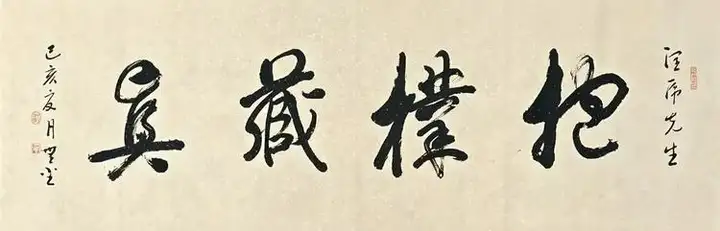 先生
抱樸藏真
己亥夏月